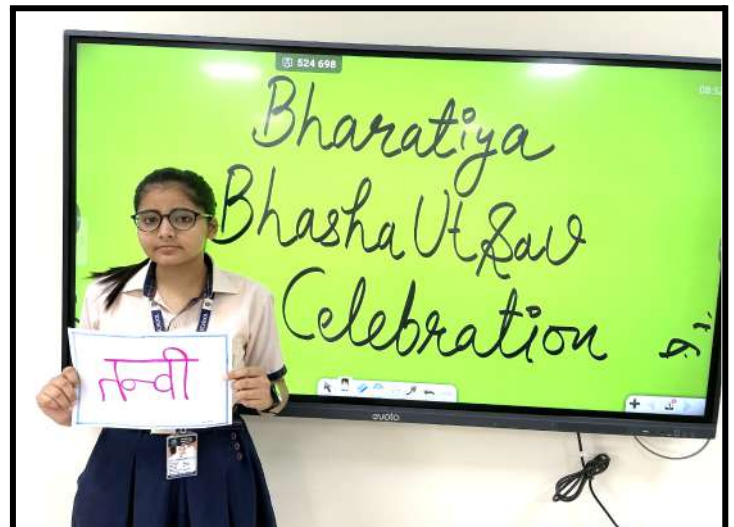 524 698
08:52
Bharatiya
Bhasha Utsav
Celebration
तन्वी
evoto